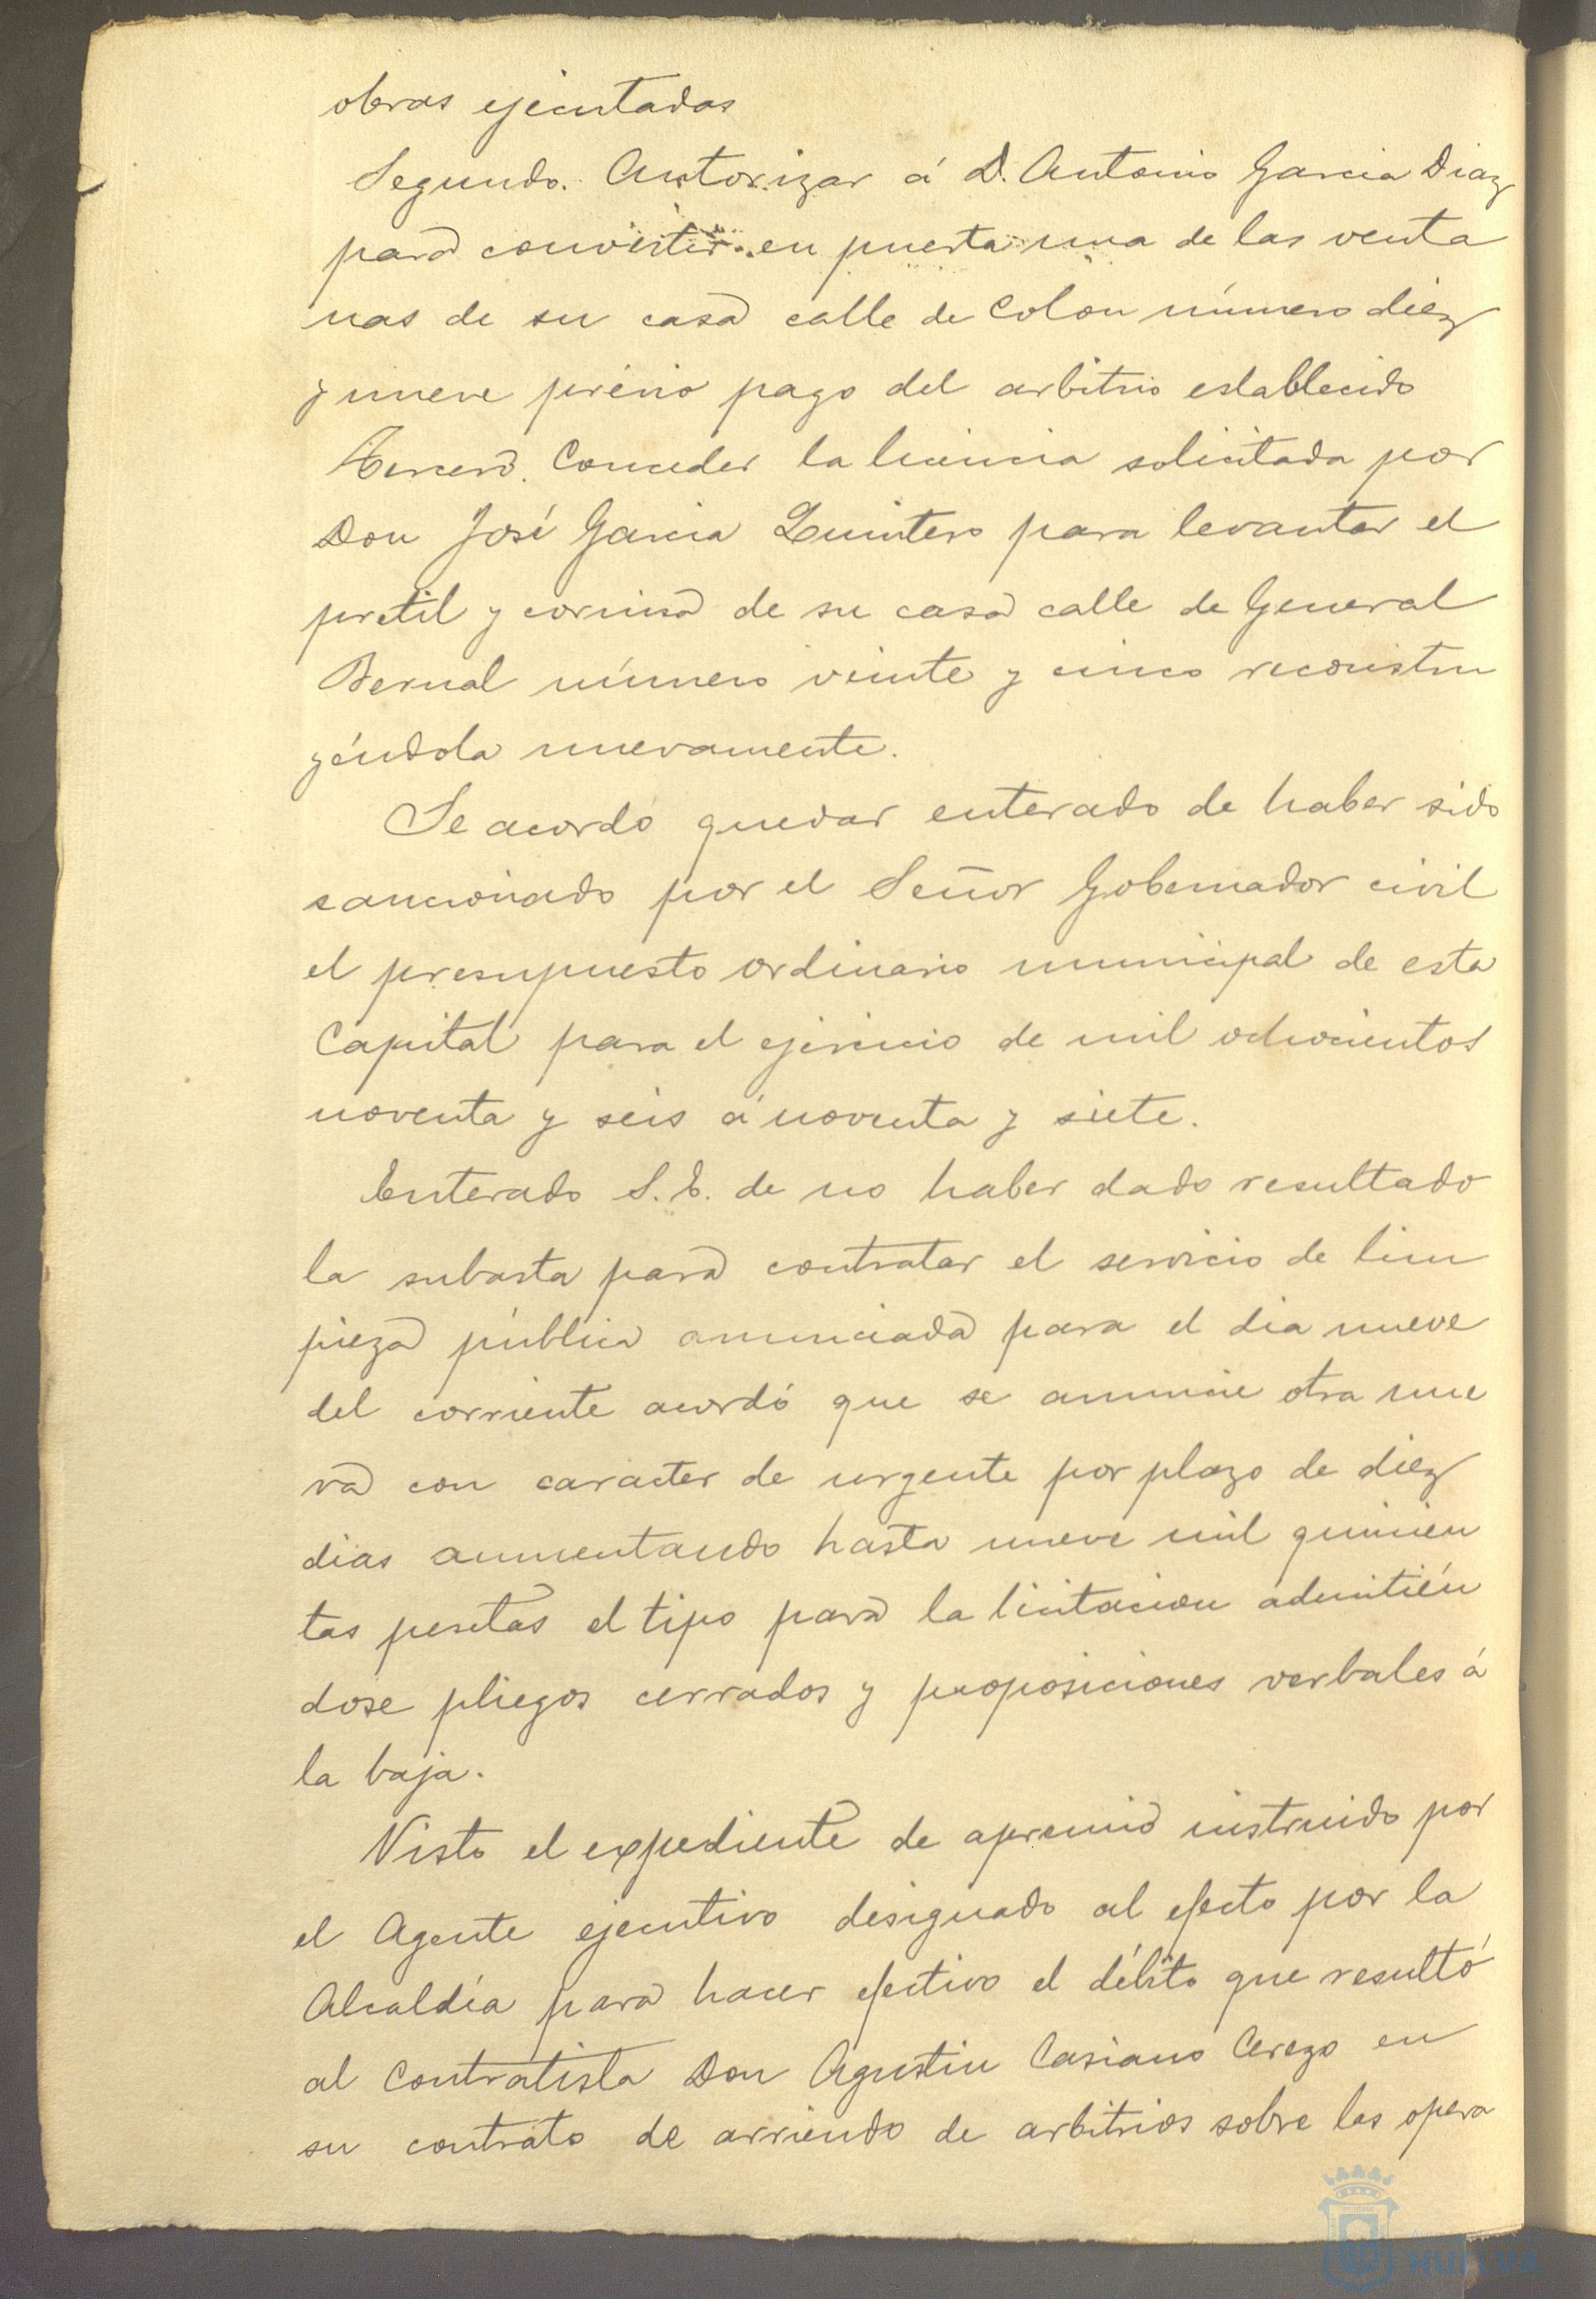 obras ejecutadas
Segundo. Autorizar á D. Antonio Garcia Diaz
para convertir en puerta una de las venta
nas de su casa calle de Colon número diez
y nueve prévio pago del arbitrio establecido
Tercero. Conceder la licencia solicitada por
Don José Garcia Quintero para levantar el
pretil y cornisa de su casa calle de General
Bernal número veinte y cinco reconstru
yéndola nuevamente.
Se acordó quedar enterado de haber sido
sancionado por el Señor Gobernador civil
el presupuesto ordinario municipal de esta
Capital para el ejercicio de mil ochocientos
noventa y seis á noventa y siete.
Enterado S. E. de no haber dado resultado
la subasta para contratar el servicio de lim
pieza pública anunciada para el dia nueve
del corriente acordó que se anuncie otra nue
va con caracter de urgente por plazo de diez
dias aumentando hasta nueve mil quinien
tas pesetas el tipo para la licitacion admitién
dose pliegos cerrados y proposiciones verbales á
la baja.
Visto el expediente de apremio instruido por
el Agente ejecutivo designado al efecto por la
Alcaldía para hacer efectivo el débito que resultó
al Contratista Don Agustin Casiano Cerezo en
su contrato de arriendo de arbitrios sobre las opera
HUELVA